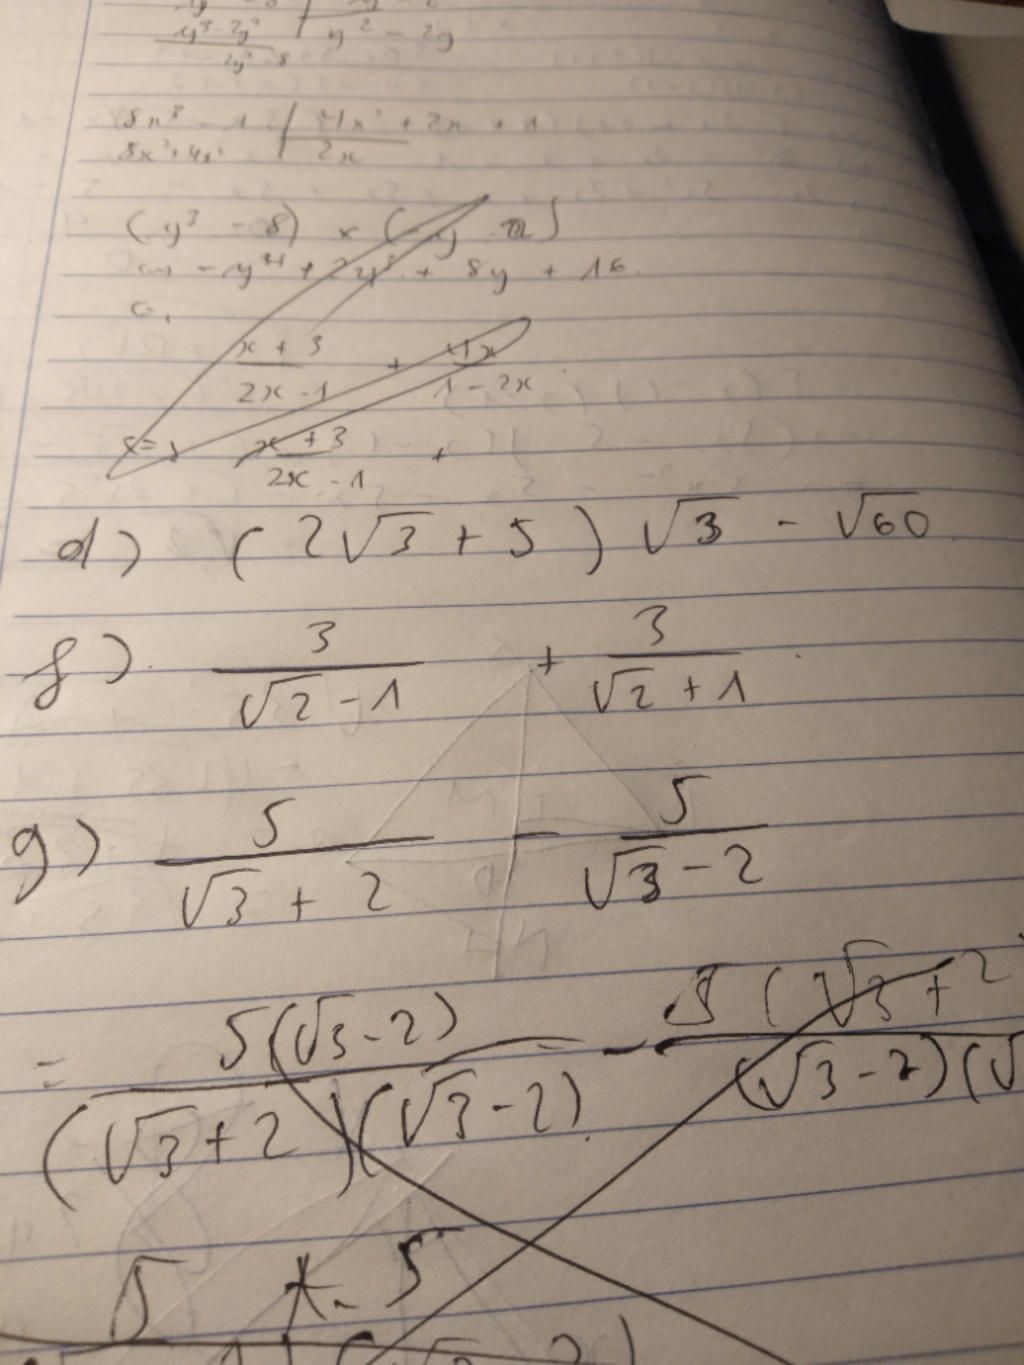 y³ - 2y² | y² - 2y
2y² - 8
8x³ - 1 | 4x² + 2x + 1
8x³ + 4x² | 2x
(y³ - 8) × (-y
- y⁴ + 2y³ + 8y + 16
(x + 3)/(2x - 1) + 4x/(1 - 2x)
(x + 3)/(2x - 1) +
d) (2√3 + 5) √3 - √60
f) 3/(√2 - 1) + 3/(√2 + 1)
g) 5/(√3 + 2) - 5/(√3 - 2)
= 5(√3 - 2)/((√3 + 2)(√3 - 2)) - 5(√3 + 2/((√3 - 2)(√
5 × - 5